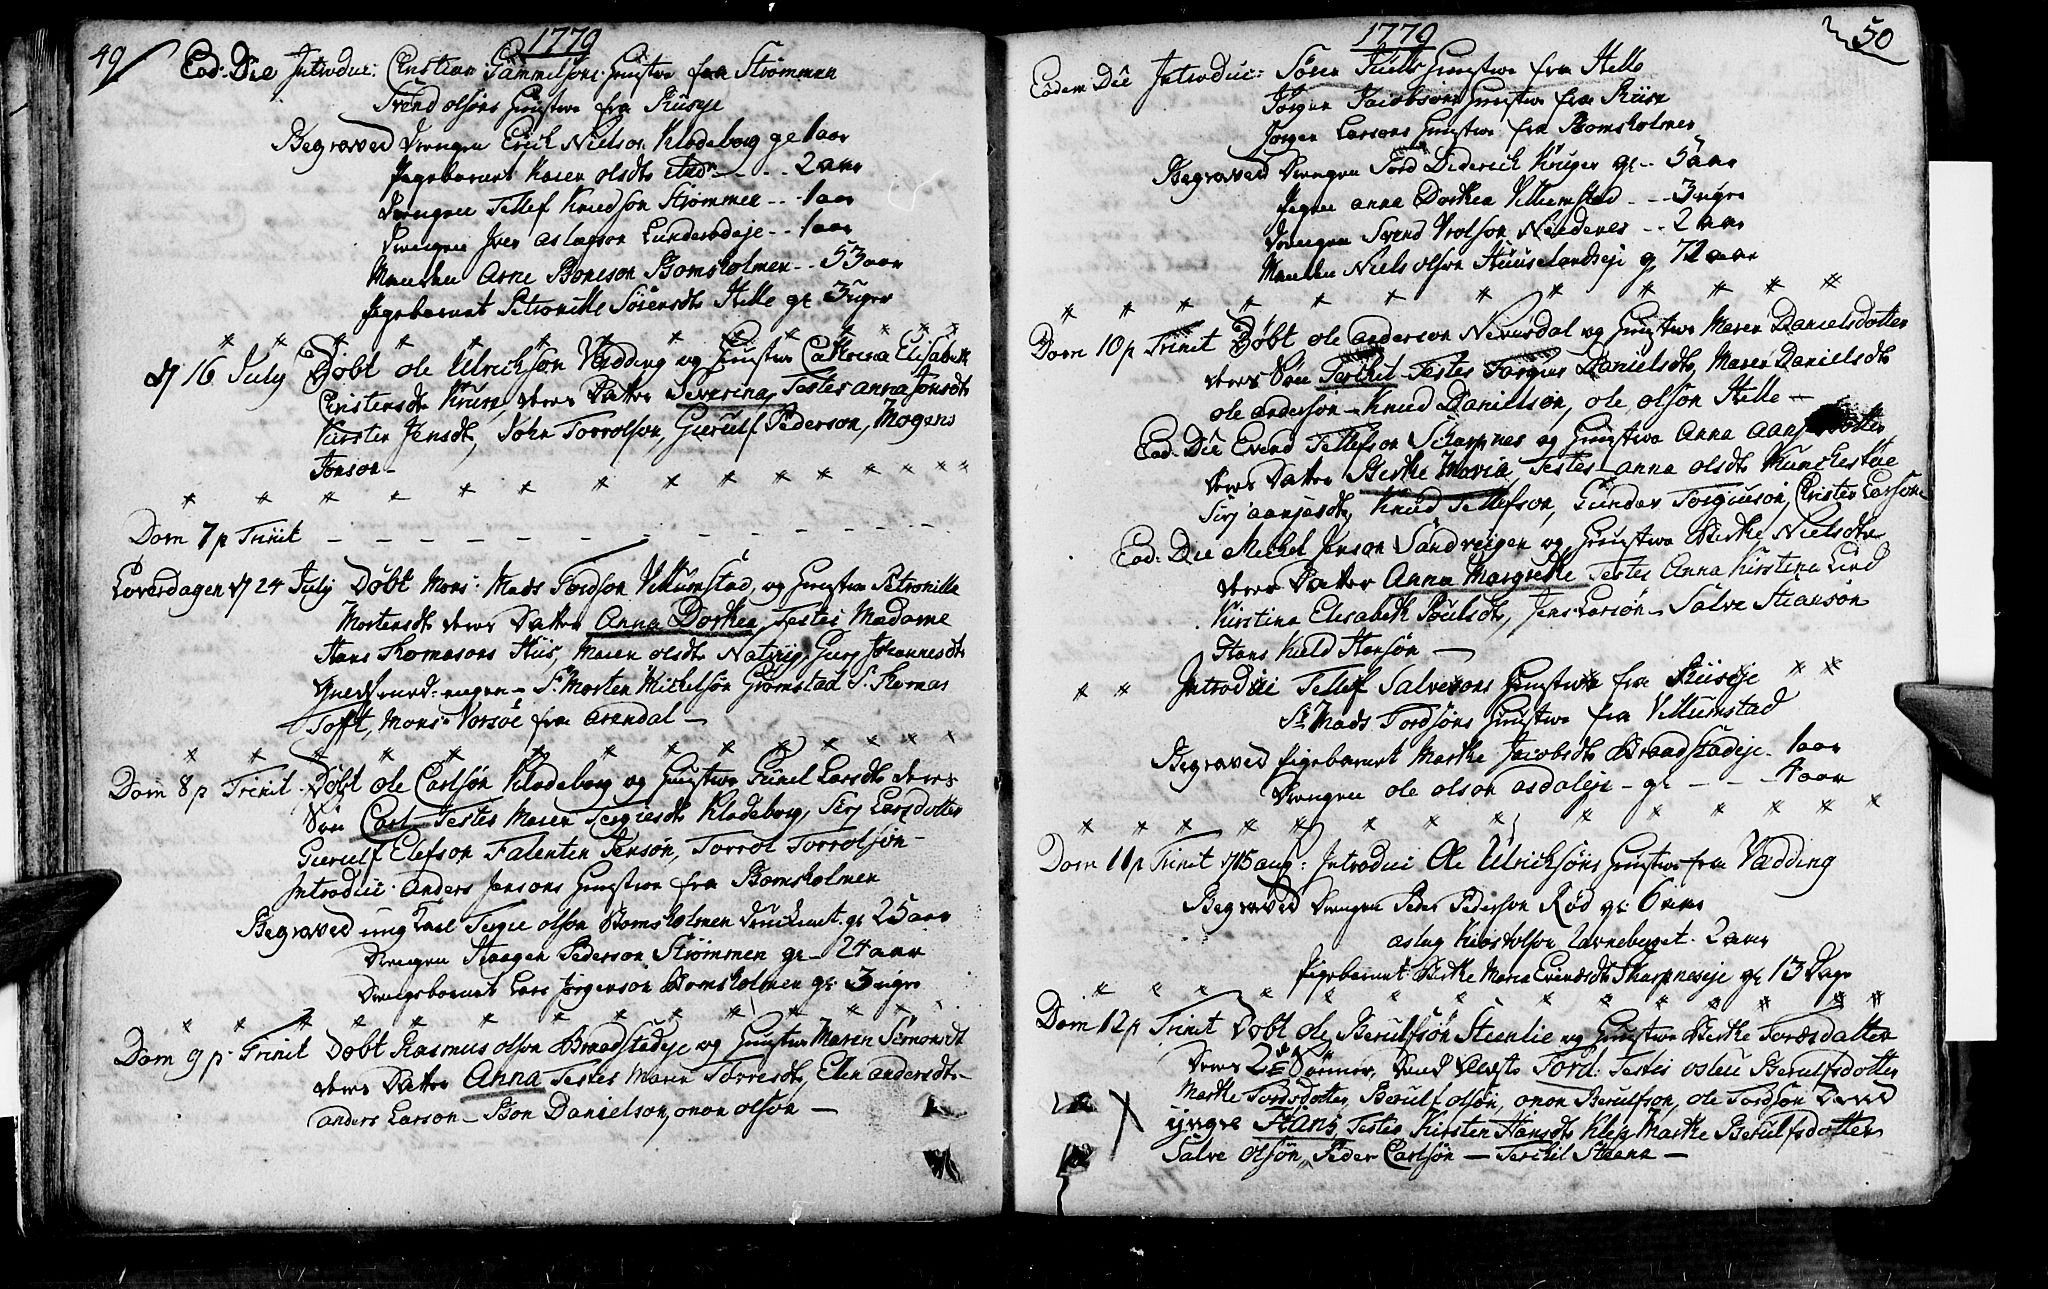 49
1779
Eod: Die Introduc: Christian Gammelsøns Hustru fra Strømmen
Svend olsøns Hustru fra Riiseje
Begraved Drengen Erich Nielson Klodeborg gl 1 aar
Pigebarnet Karen olsdt - - - 2 aar
Drengen Tellef Knudson Strømmen - - 1 aar
Drengen Iver aslagson Lunderødeje - - 1 aar
Manden Arne Boneson Bomsholmen - - 53 aar
Pigebarnet Petronille Sørensdt Helle gl 3 uger
d 16 July Døbt ole Ulrichsøn Vædding og Hustru Cathrina Elisabeth
Christensdt Kruse, deres Datter Severina, Testes anna Jonsdt
Kirsten Jensdt, John Torrolson, Gurulf Pederson, Mogens
Jonson -
Dom 7 p Trinit - - - - - - - - - - - -
Løverdagen d 24 July Døbt Mons: Mads Tordson Villumstad, og Hustru Petronille
Mortensdt deres Datter Anna Dorthea, Testes Madame
Hans Thomasons Hiis, Maren olsdt Natvig, Gurj Johannesdt
- Sr Morten Michelsøn Grømstad S. Thomas
Tofft, Mons: Vorsøe fra arendal -
Dom 8 p Trinit - Døbt ole Carlsøn Klodeborg og Hustru Gunel Larsdt deres
Søn Carl - Testes Maren Tergiesdt Klodeborg, Siri Larsdotter
Gurulf Elefson Falenten Jensøn, Torrol Torrolsøn -
Introduc: Anders Jensons Hustru fra Bomsholmen
Begraved ung Karl Tergie olson Bomsholmen druknet. gl 25 aar
Drengen Haagen Pederson Strømmen gl - 24 aar
Drengebarnet Lars Jørgenson Bomsholmen gl: 3 uger
Dom 9 p: Trinit Døbt Rasmus olson Braadstadeje og Hustru Maren Simonsdt
deres Datter Anna Testes Maren Torresdt, Elen andersdt -
anders Larson - Bon Danielson, onon olson -
50
1779
Eodem Die Introduc: Søren Hustru fra Helle
Jørgen Jacobsøns Hustru fra Riise
Jørgen Larsons Hustru fra Bomsholmen
Begraved Drengen Tord Diderich Kruger gl - 5 aar
Pigen anna Dorthea Villumstad - - - 3 uger
Drengen Svend Nedenes - - 2 aar
Manden Niels olson Huuselandseje gl 72 aar
Dom 10 p Trinit Døbt ole anderson Neversdal og Hustru Maren Danielsdotter
deres Søn Terkil - Testes Danielsdt, Maren Danielsdt
ole anderson - Knud Danielson, ole olson Helle -
Eod: Die Evend Tellefson Skarpnes og Hustru Anna
deres Datter Birthe Maria Testes - anna olsdt
Siri aanjesdt, Knud Tellefson, Gunder Torguuson, Christen Larson
Eod: Die Michel Jenson Sandvigen og Hustru Birthe Nielsdt
deres Datter Anna Margrethe Testes Anna Kirstina Lind
Kirstina Elisabeth Poulsdt, Jens Larsøn - Salve Steanson
Hans Kield Hansøn -
Introduc Tellef Salvesons Hustru fra Riiseje
Sr: Mads Tordsøns Hustru fra Villumstad
Begraved Pigebarnet Marthe Jacobsdt Braadstadeje - 1 aar
Drengen ole olson asdaleje - gl - - - 4 aar
Dom 11 p Trinit d 15 aug: Introduc Ole Ulrichsøns Hustru fra Vædding
Begraved Drengen Peder Pederson Rød gl: 6 aar
aslag Christofson 2 aar
Pigebarnet Birthe Maria Evendsdt Skarpneseje gl 13 Dage
Dom 12 p Trinit Døbt ole Berulfsøn Steenlie og Hustru Birthe Tordsdatter
deres 2de Sønner, Tord: Testes oslou Berulfsdotter
Marthe Tordsdotter, Berulf olsøn, onon Berulfson, ole Tordson Den
yngre Hans, Testes Kirsten Hansdt Klep Marthe Berulfsdotter
Salve olsøn, Peder Carlsøn - Terchil Steane -